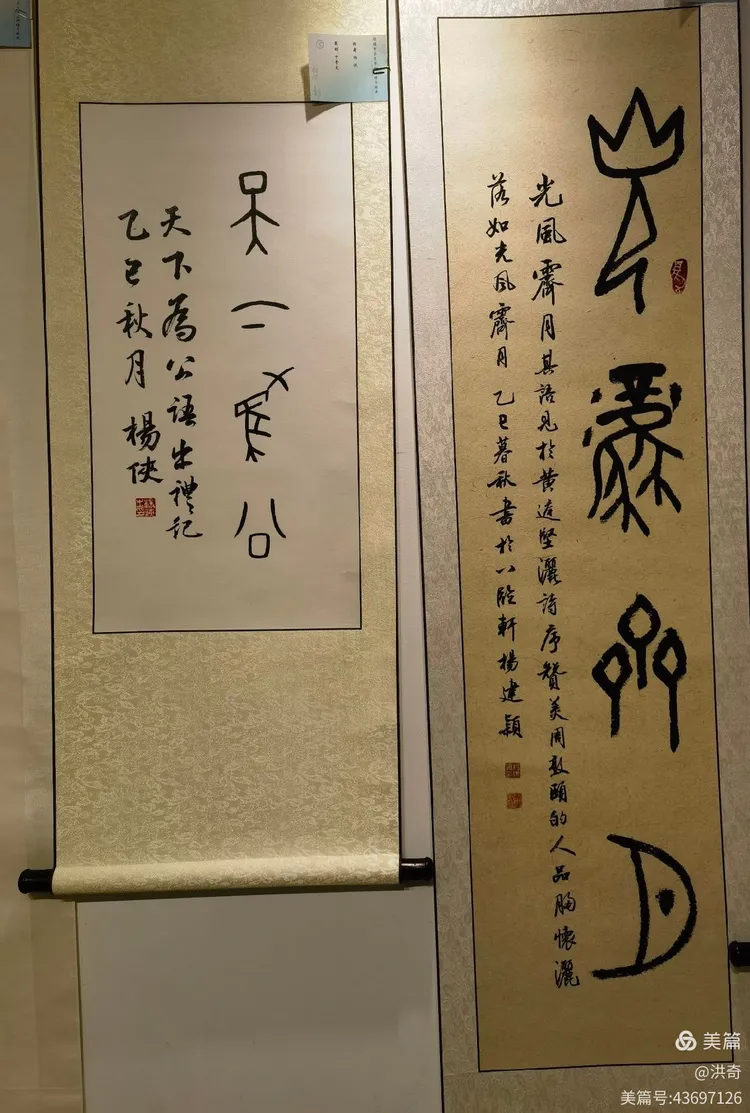 天下為公
天下為公語出禮記
乙巳秋月 楊俠
光風霽月
光風霽月其語見於黄庭堅濂詩序贊美周敦頤的人品胸懷灑
落如光風霽月 乙巳暮秋書於八軒楊建穎
美篇
@洪奇
美篇号:43697126